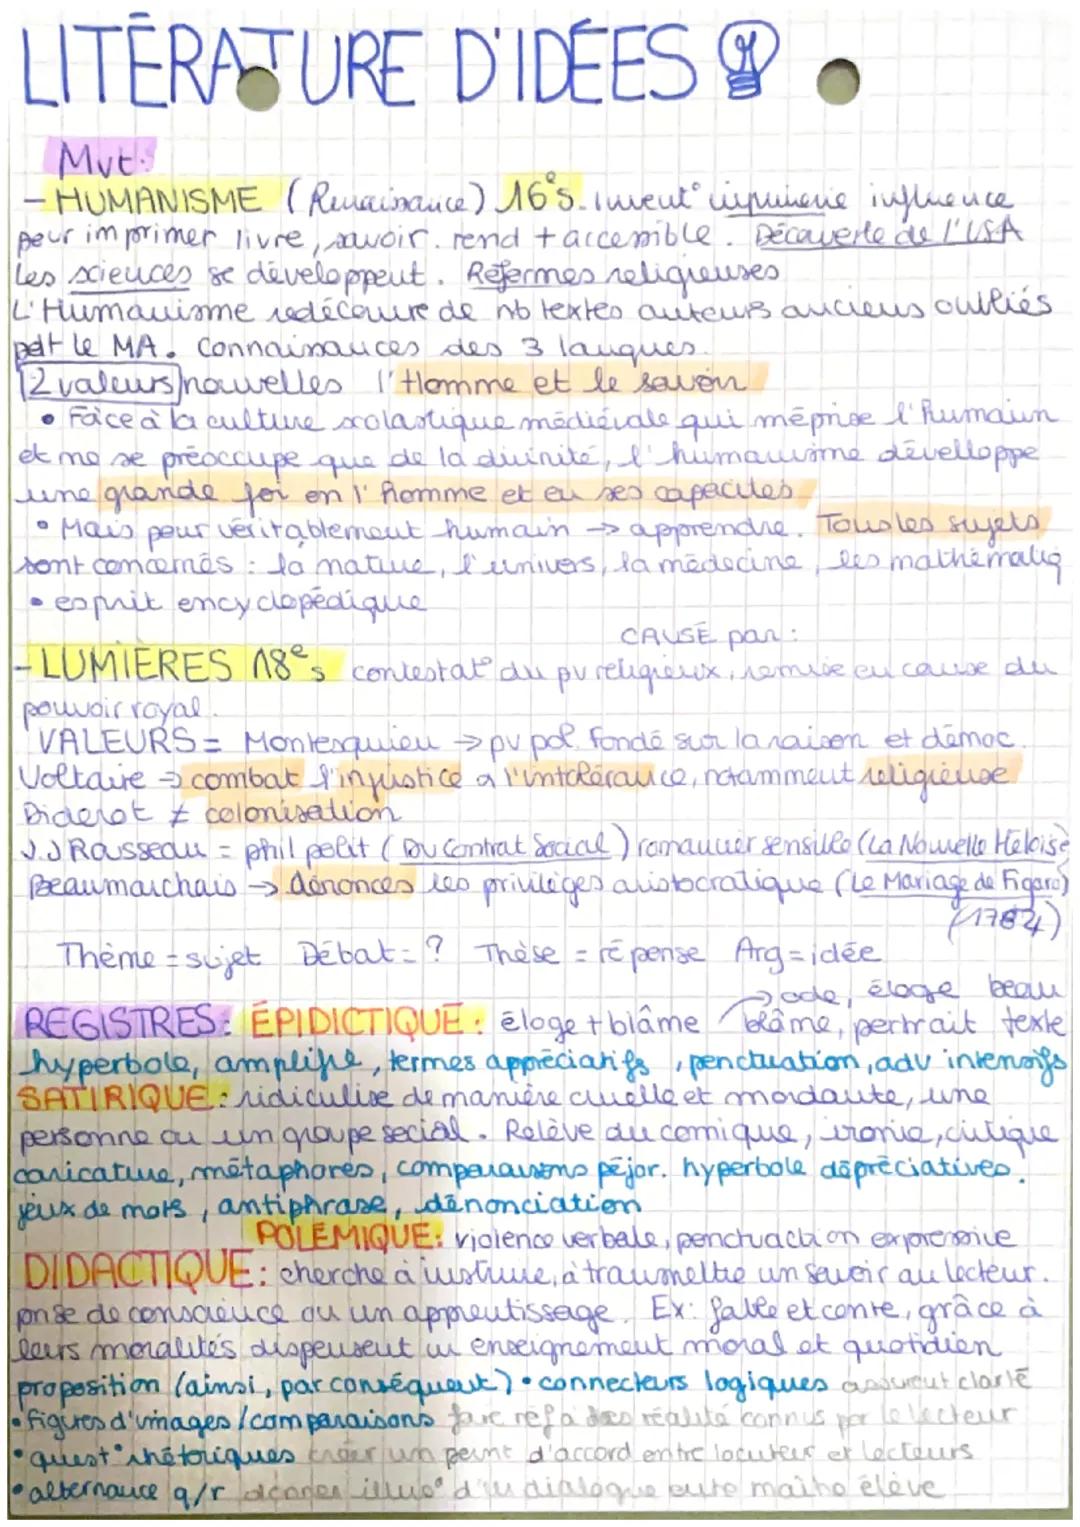 LITÉRATURE D'IDÉES
Mvt:
- HUMANISME (Renaissance) 16e s. invent° imprimerie influence
peur imprimer livre, savoir. rend + accessible. Découverte de l'USA
Les sciences se développent. Réformes religieuses
L'Humanisme redécouvre de nb textes auteurs anciens oubliés
pdt le MA. Connaissances des 3 langues.
2 valeurs nouvelles l'Homme et le savoir
• Face à la culture scolastique médiévale qui méprise l'humain
et me se préoccupe que de la divinité, l'humanisme dévelloppe
une grande foi en l'homme et en ses capacités
• Mais pour véritablement humain → apprendre. Tous les sujets
sont concernés : la nature, l'univers, la médecine, les mathématiq
• esprit encyclopédique
CAUSÉ par :
- LUMIÈRES 18e s contestat° du pv religieux, remise en cause du
pouvoir royal.
VALEURS = Montesquieu → pv pol. fondé sur la raison et démoc.
Voltaire → combat l'injustice a l'intolérance, notamment religieuse
Diderot ≠ colonisation
J.J Rousseau = phil polit (Du Contrat Social) romancier sensible (La Nouvelle Héloïse
Beaumarchais → dénonces les privilèges aristocratique (Le Mariage de Figaro)
(1784)
Thème = sujet Débat = ? Thèse = réponse Arg = idée
→ ode, éloge beau
REGISTRES: ÉPIDICTIQUE : éloge + blâme blâme, portrait texte
hyperbole, amplifie, termes appréciatifs, ponctuation, adv intensifs
SATIRIQUE : ridiculise de manière cruelle et mordante, une
personne ou un groupe social. Relève du comique, ironie, critique
caricature, métaphores, comparaisons péjor. hyperbole dépréciatives.
jeux de mots, antiphrase, dénonciation
POLÉMIQUE: violence verbale, ponctuaction expressive
DIDACTIQUE: cherche à instruire, à transmettre un savoir au lecteur.
prise de conscience ou un apprentissage. Ex: fable et conte, grâce à
leurs moralités dispensent un enseignement moral et quotidien
proposition (ainsi, par conséquent) • connecteurs logiques assurent clarté
• figures d'images / comparaisons faire réf à des réalité connus par le lecteur
• quest° rhétoriques créer un point d'accord entre locuteur et lecteurs
• alternance q/r donner illus° d'un dialogue entre maître élève